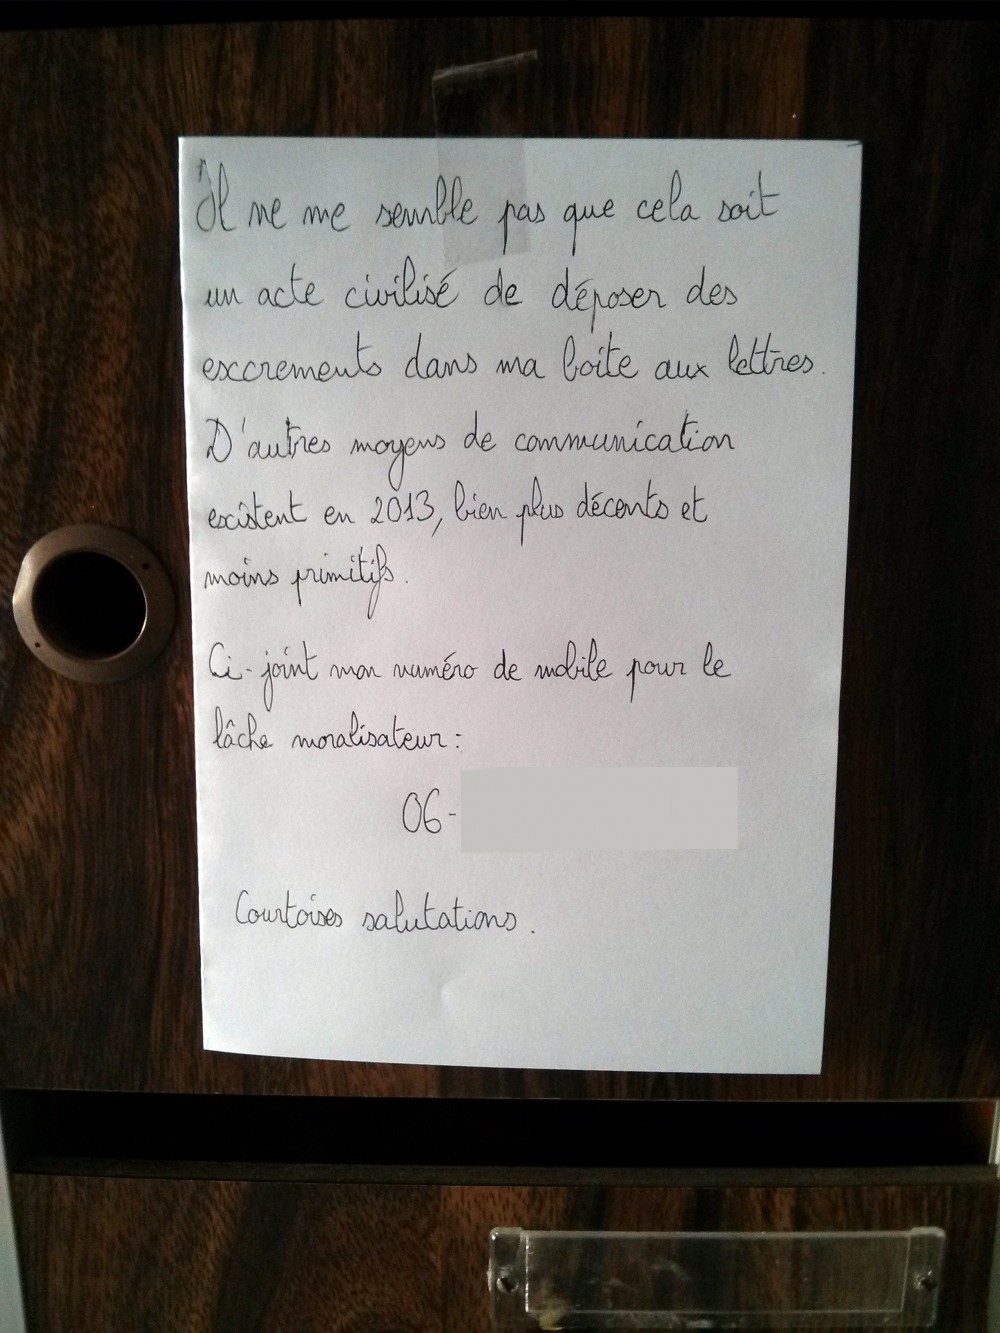 Il ne me semble pas que cela soit
un acte civilisé de déposer des
excrements dans ma boite aux lettres.
D'autres moyens de communication
existent en 2013, bien plus décents et
moins primitifs.
Ci-joint mon numéro de mobile pour le
lâche moralisateur :
06-
Courtoises salutations.